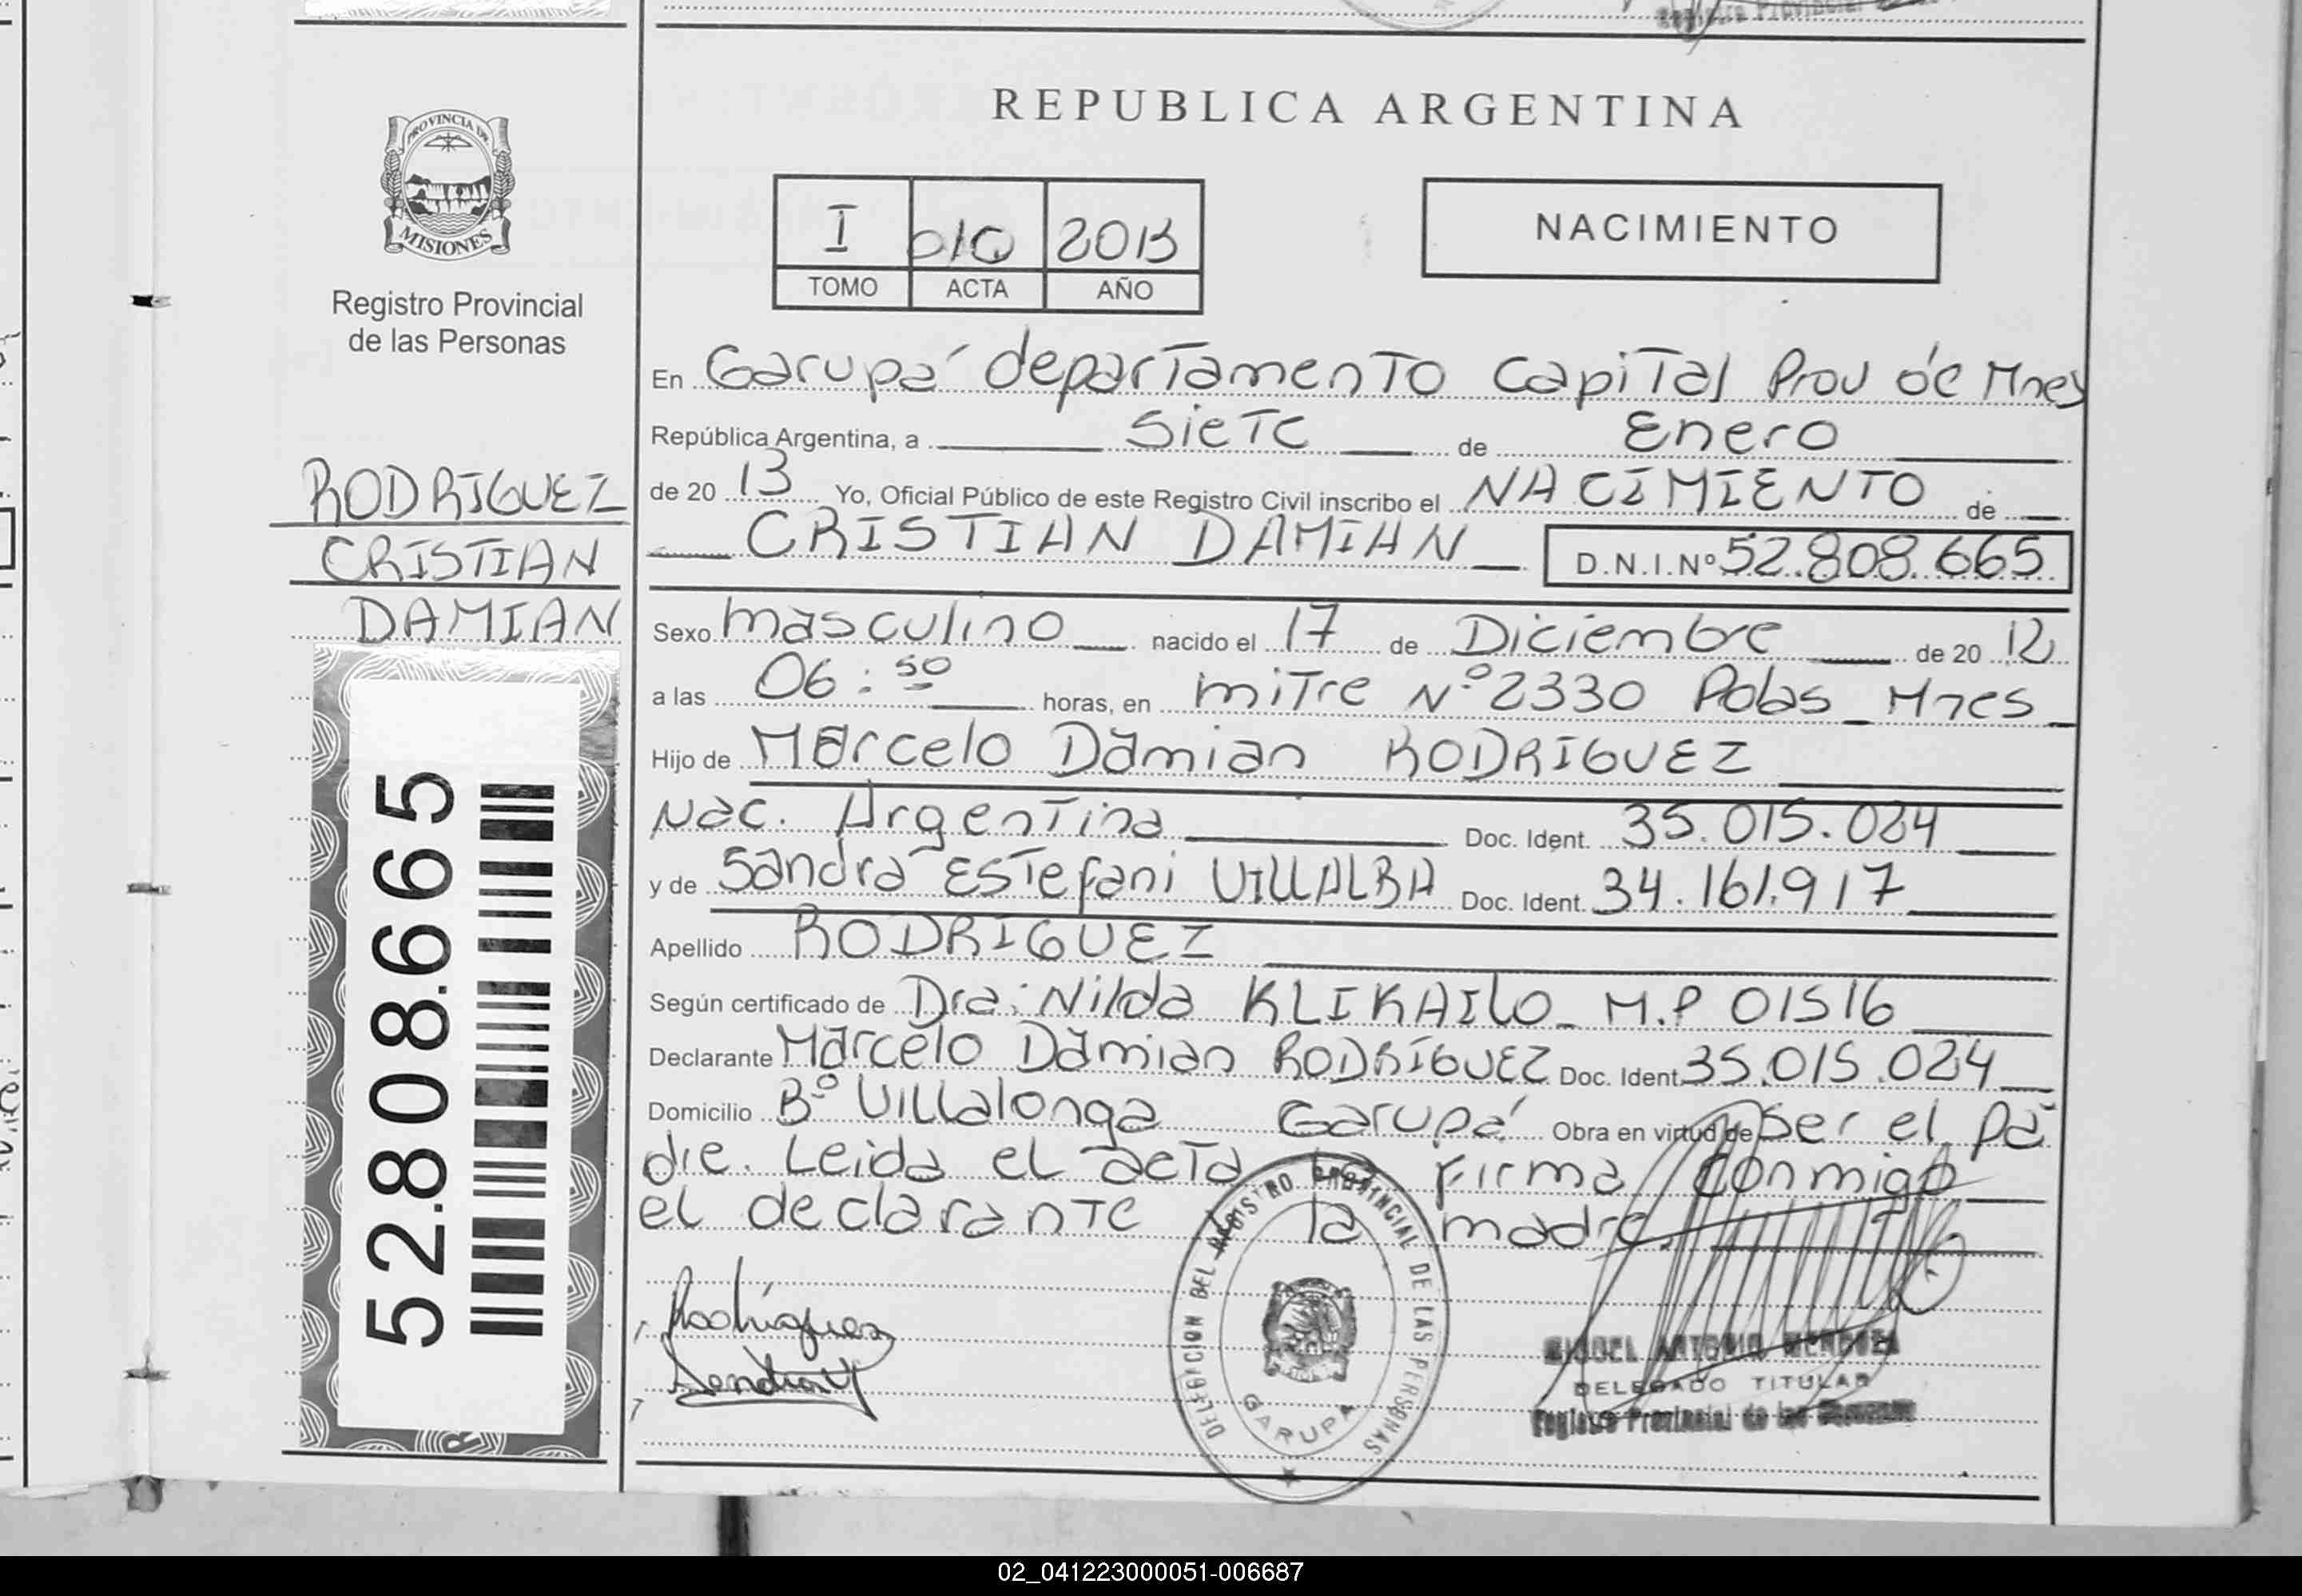 REPUBLICA ARGENTINA
PROVINCIA DE
MISIONES
Registro Provincial
de las Personas
RODRIGUEZ
CRISTIAN
DAMIAN
52.808.665
I 010 2013
TOMO ACTA AÑO
NACIMIENTO
En Garupá departamento Capital Prov de Mnes
República Argentina, a siete de Enero
de 2013 Yo, Oficial Público de este Registro Civil inscribo el NACIMIENTO de
CRISTIAN DAMIAN D.N.I.Nº 52.808.665
Sexo masculino nacido el 17 de Diciembre de 2012
a las 06:50 horas, en mitre Nº 2330 Pdas Mnes
Hijo de Marcelo Damian RODRIGUEZ
Nac. Argentina Doc. Ident. 35.015.024
y de Sandra Estefani VILLALBA Doc. Ident. 34.161.917
Apellido RODRIGUEZ
Según certificado de Dra: Nilda KLIKAILO M.P 01516
Declarante Marcelo Damian RODRIGUEZ Doc. Ident. 35.015.024
Domicilio Bº Villalonga Garupá Obra en virtud de ser el pa
dre. Leida el acta la firma conmigo
el declarante la madre.
Rodriguez
Sandra V
DELEGACION DEL REGISTRO PROVINCIAL DE LAS PERSONAS
GARUPA
MIGUEL ANTONIO MENDOZA
DELEGADO TITULAR
Registro Provincial de las Personas
02_041223000051-006687